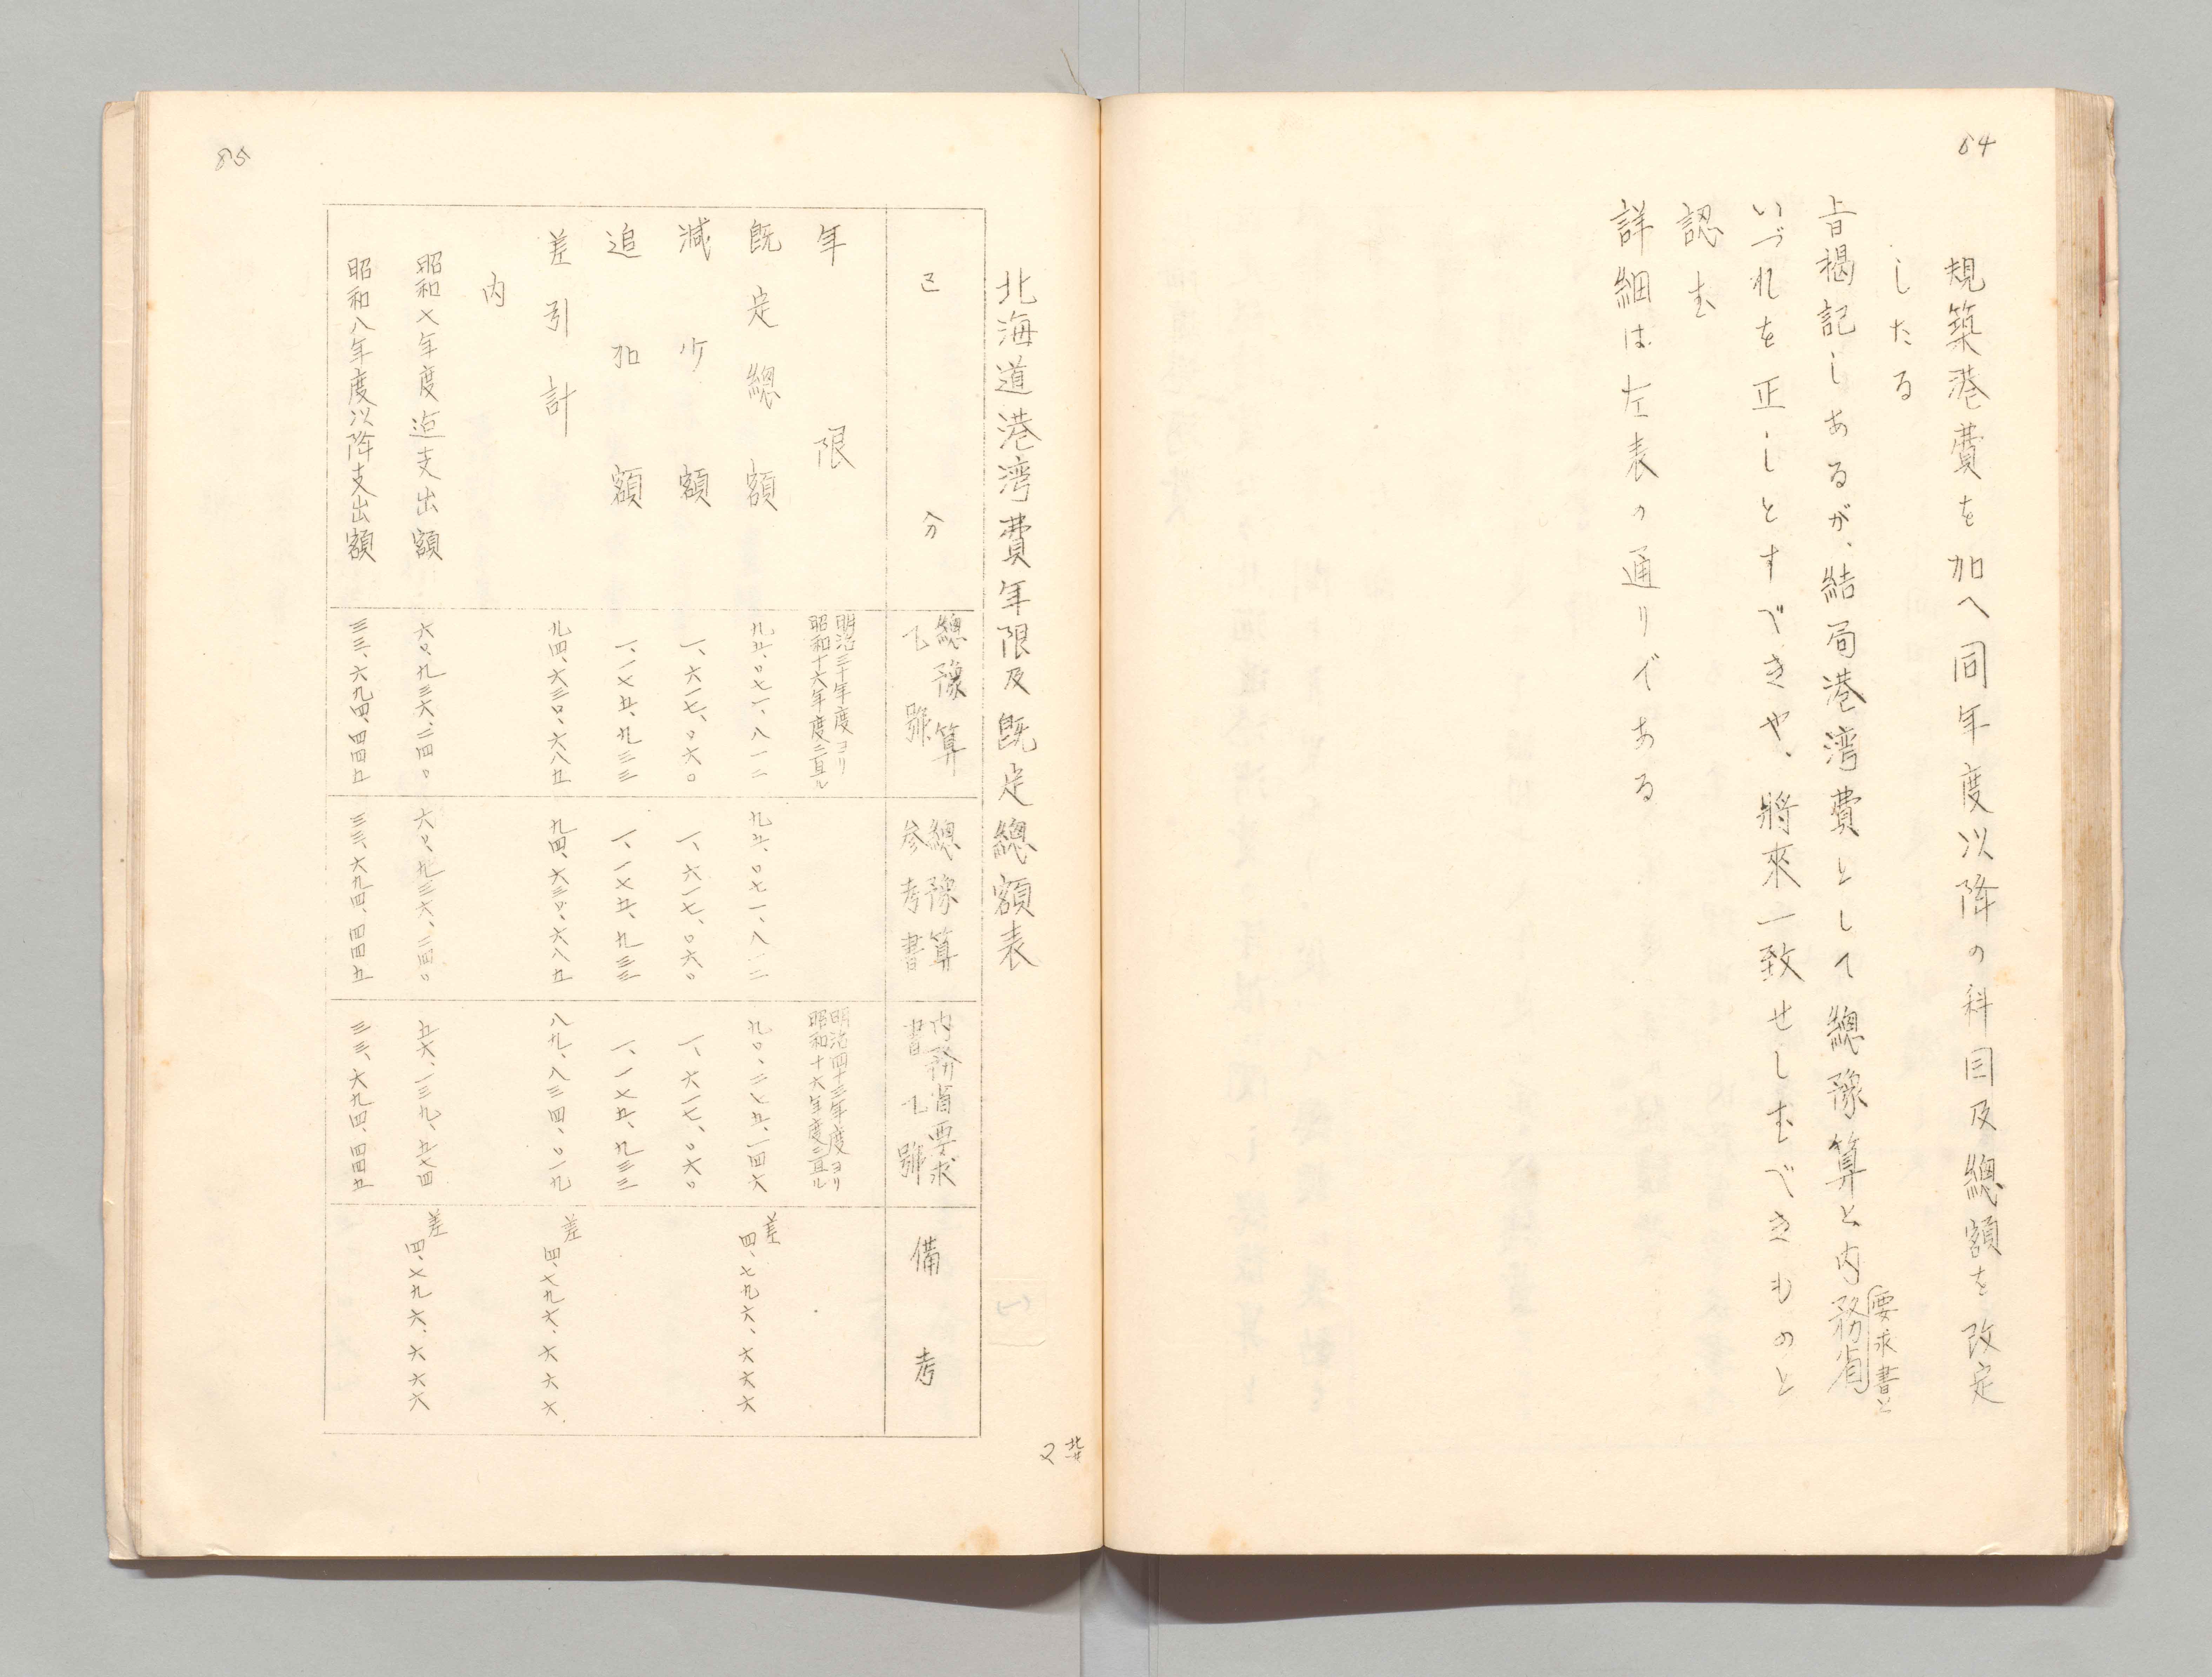 84
規築港費を加へ同年度以降の科目及總額を改定
したる
旨褐記しあるが、結局港湾費として總豫算と内務省
要求書と
いづれを正しとすべきや、將來一致せしむべきものと
認む
詳細は左表の通りである
85
北海道港湾費年限及既定總額表
区分
總豫算乙號
總豫算参考書
内務省要求書乙號
備考
年限
明治三十年度ヨリ
昭和十六年度ニ亘ル
明治四十三年度ヨリ
昭和十六年度ニ亘ル
既定總額
九五、〇七一、八一二
九五、〇七一、八一二
九〇、二七五、一四六
差
四、七九六、六六六
減少額
一、六一七、〇六〇
一、六一七、〇六〇
一、六一七、〇六〇
追加額
一、一七五、九三三
一、一七五、九三三
一、一七五、九三三
差引計
九四、六三〇、六八五
九四、六三〇、六八五
八九、八三四、〇一九
差
四、七九六、六六六
内
昭和七年度迠支出額
六〇、九三六、二四〇
六〇、九三六、二四〇
五六、一三九、五七四
差
四、七九六、六六六
昭和八年度以降支出額
三三、六九四、四四五
三三、六九四、四四五
三三、六九四、四四五